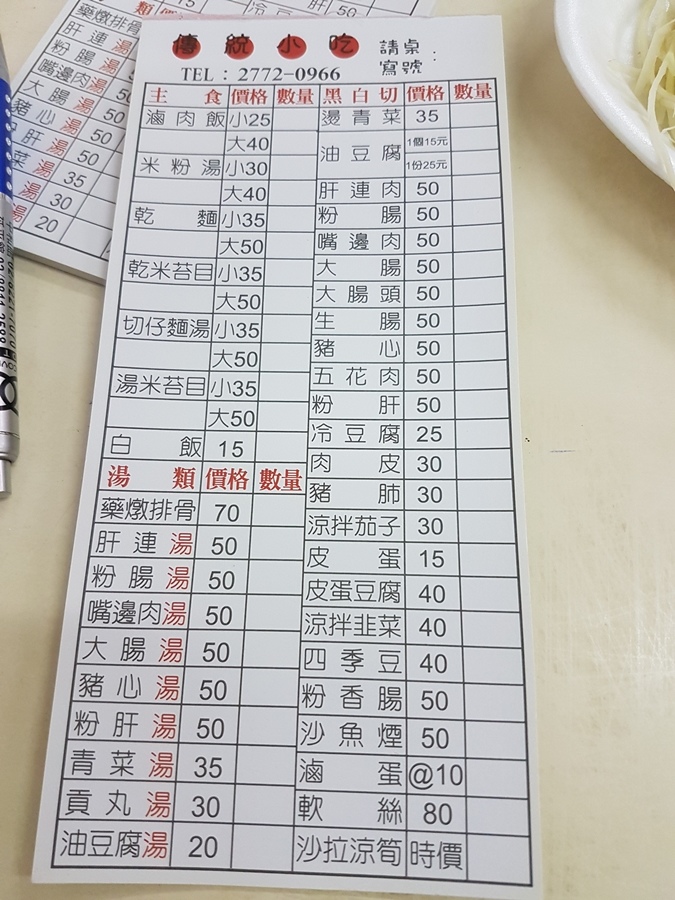 傳統小吃
請桌：
寫號
TEL：2772-0966
主食 價格 數量
滷肉飯 小25
大40
米粉湯 小30
大40
乾麵 小35
大50
乾米苔目 小35
大50
切仔麵湯 小35
大50
湯米苔目 小35
大50
白飯 15
湯類 價格 數量
藥燉排骨 70
肝連湯 50
粉腸湯 50
嘴邊肉湯 50
大腸湯 50
豬心湯 50
粉肝湯 50
青菜湯 35
貢丸湯 30
油豆腐湯 20
黑白切 價格 數量
燙青菜 35
油豆腐 1個15元
1份25元
肝連肉 50
粉腸 50
嘴邊肉 50
大腸 50
大腸頭 50
生腸 50
豬心 50
五花肉 50
粉肝 50
冷豆腐 25
肉皮 30
豬肺 30
涼拌茄子 30
皮蛋 15
皮蛋豆腐 40
涼拌韭菜 40
四季豆 40
粉香腸 50
沙魚煙 50
滷蛋 @10
軟絲 80
沙拉涼筍 時價
類
藥燉排骨
肝連湯
粉腸湯
嘴邊肉湯
大腸湯 50
豬心湯 50
肝湯 50
菜湯 35
湯 30
湯 20